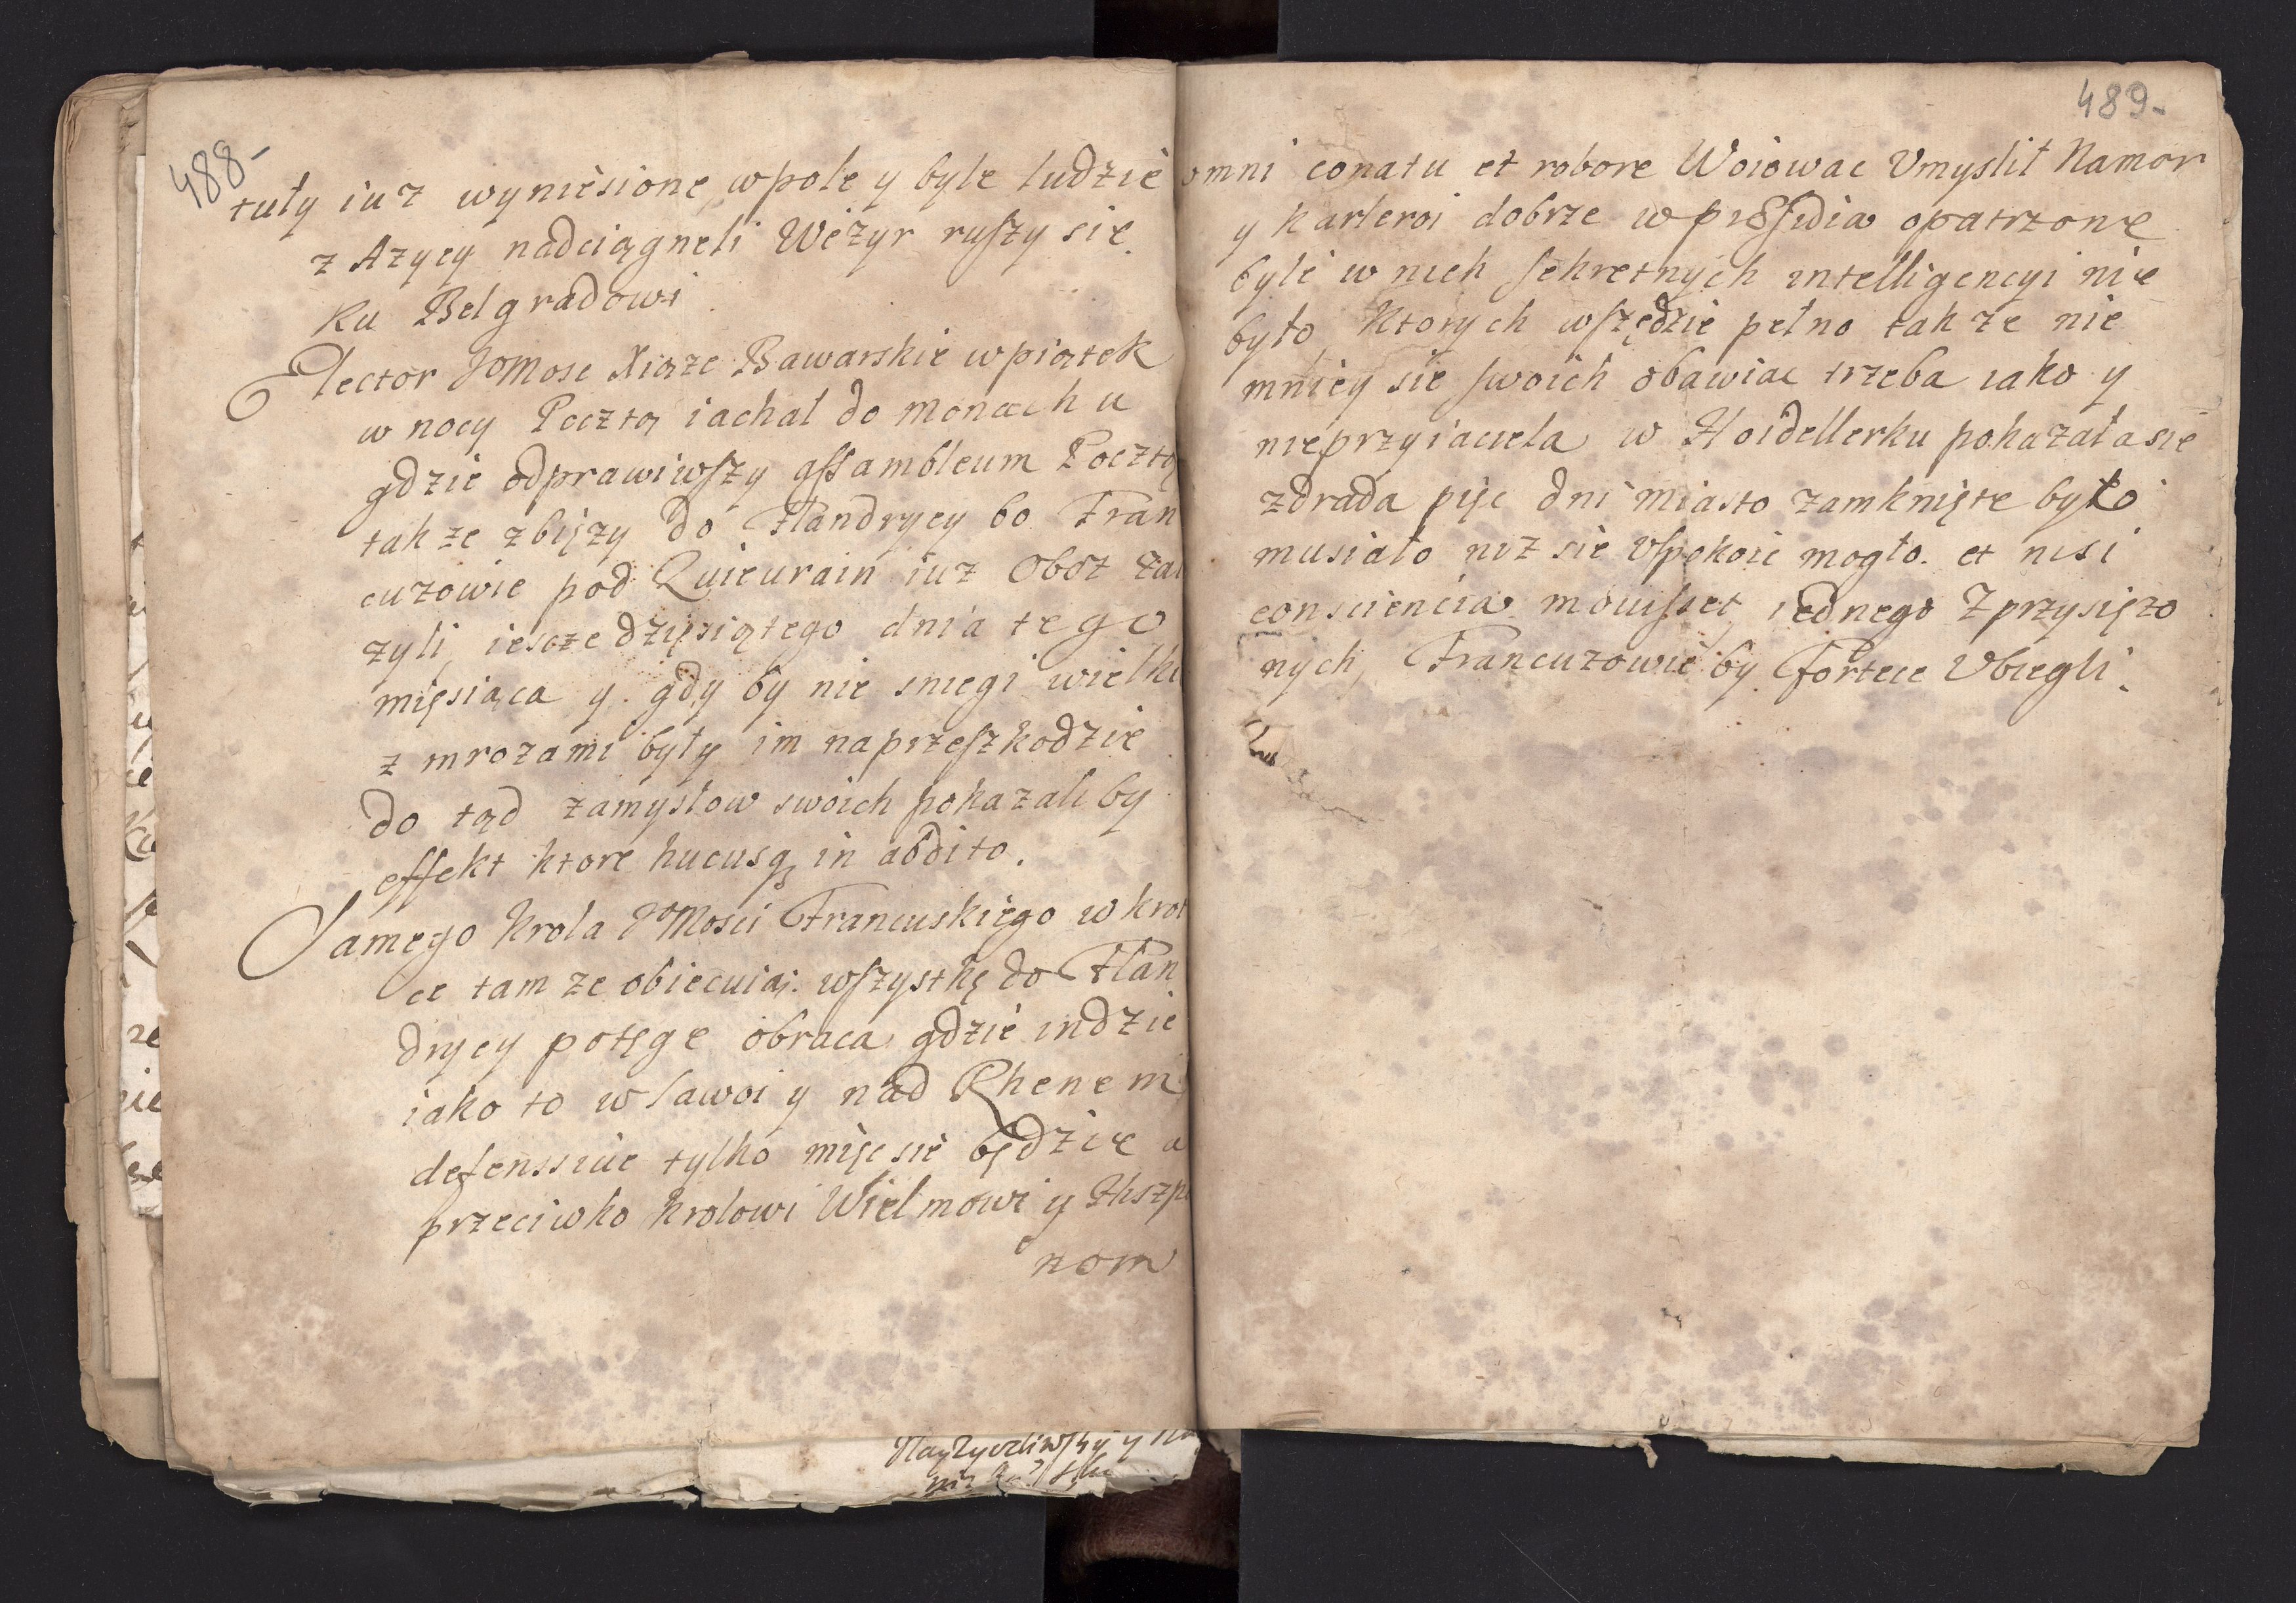 488-
tuły iuz wyniesione, w pole y byle ludzie
z Azycy nadciągneli Wezyr ruszy sie
Ku Belgradowi
Elector JoMosc Xiąze Bawarskie w piątek
w nocy Pocztą iachał do monachu
gdzie odprawiwszy assambleum Pocztą
takze zbięzy do Flandrycy bo Fran
cuzowie pod Quieurain iuz Oboz
zyli, iescze dzięsiątego dnia tego
mięsiąca y gdy by nie sniegi wielki
z mrozami były im na przeszkodzie
do tąd zamysłow swoich pokazali by
effekt ktore hucusq in abdito.
Samego Krola JoMosci Francuskiego w krot
ce tam ze obiecuią: wszystkę do Flan
drycy potęge obraca gdzie indzie
iako to w Sawoi y nad Rhenem
defenssiue tylko mięc sie będzie a
przeciwko Krolowi Wielmowi y Hiszpa
nom
Nayzyczliwszy y
489-
omni conatu et robore Woiowac Vmyslił Namor
y Karleroi dobrze w pręssidia opatrzone
byle w nich sekretnych intelligencyi nie
było, Ktorych wszędzie pełno tak ze nie
mniey sie swoich obawiac trzeba iako y
nieprzyiaciela w Hoidellerku pokazała sie
zdrada pięc dni miasto zamknięte było
musiało niz sie Vspokoic mogło. et nisi
consciencia mouisset, iednego z przysięzo
nych, Francuzowie by Fortece Vbiegli.